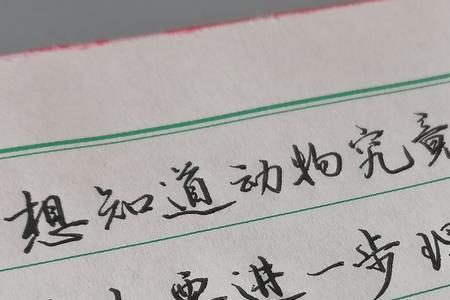 想知道动物究竟
要进一步